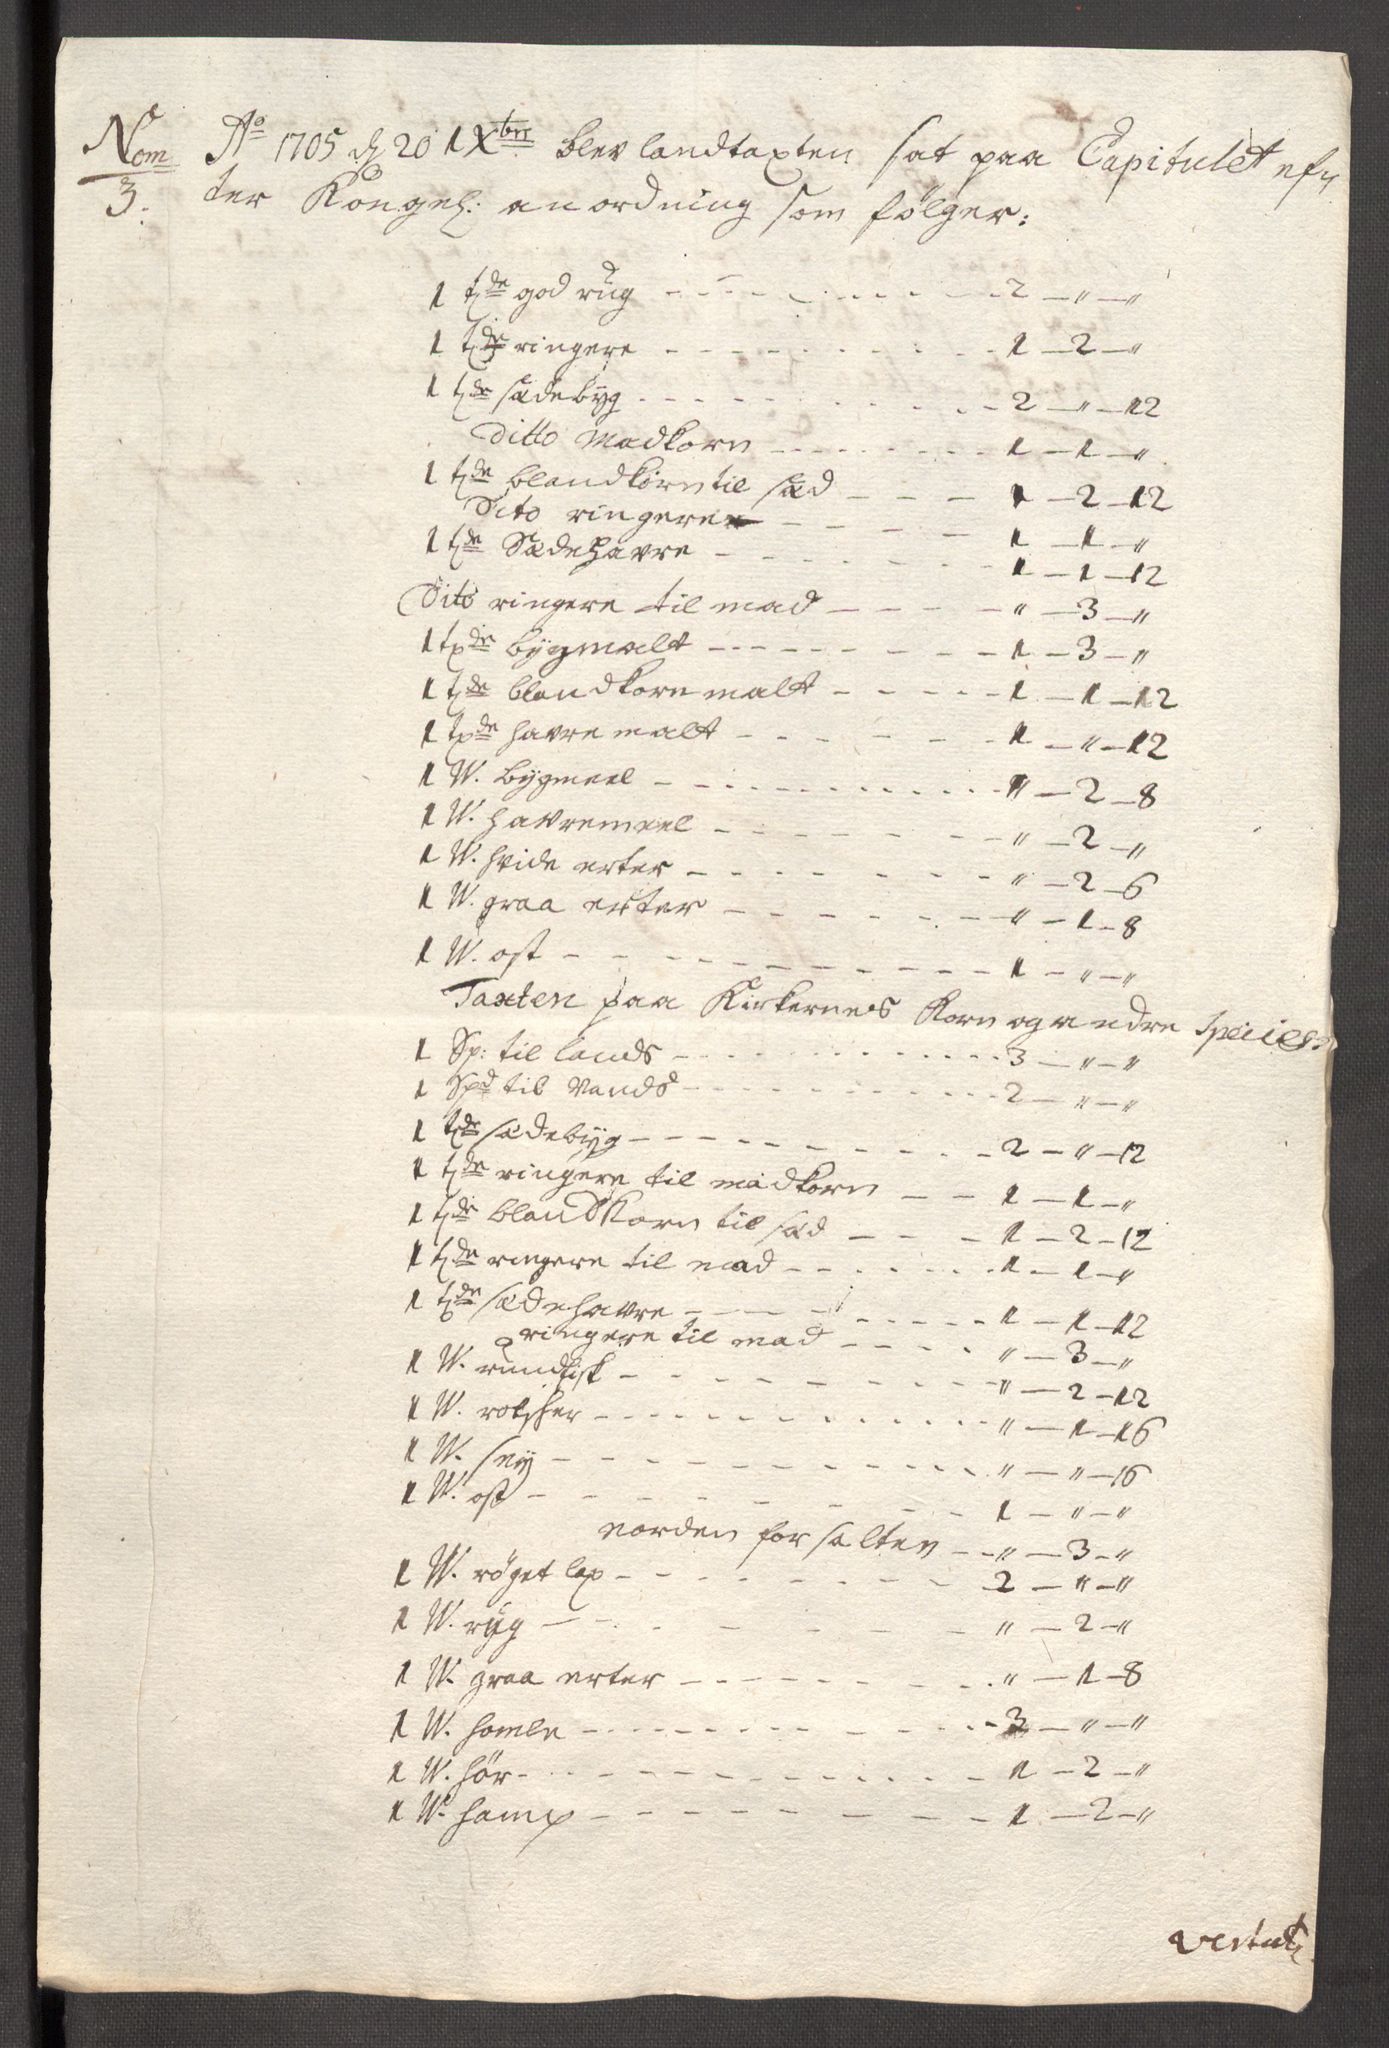 Nom 3.
Ao 1705 d 20 Xbre blev landtaxten sat paa Capitulet ef¬
ter Kongel: anordning som følger:
1 tde god rug 2 — " — "
1 tde ringere 1 — 2 — "
1 tde sædebyg 2 — " — 12
Ditto Madkorn 1 — 1 — "
1 tde blandkorn til sæd 1 — 2 — 12
Dito ringere 1 — 1 — "
1 tde Sædehavre 1 — 1 — 12
Dito ringere til mad " — 3 — "
1 tde bygmalt 1 — 3 — "
1 tde blandkorn malt 1 — 1 — 12
1 tde havre malt 1 — " — 12
1 W. bygmeel " — 2 — 8
1 W. havremeel " — 2 — "
1 W. hvide erter " — 2 — 6
1 W. graa erter " — 1 — 8
1 W. ost 1 — " — "
Taxten paa Kirkernes Korn og andre Species:
1 Sp: til lands 3 — " — "
1 Spd til Vands 2 — " — "
1 tde sædebyg 2 — " — 12
1 tde ringere til madkorn 1 — 1 — "
1 tde blandkorn til sæd 1 — 2 — 12
1 tde ringere til mad 1 — 1 — "
1 tde sædehavre 1 — 1 — 12
ringere til mad " — 3 — "
1 W. rundfisk " — 2 — 12
1 W. rotscher " — 1 — 16
1 W. sey " — " — 16
1 W. ost 1 — " — "
norden for salten " — 3 — "
1 W. röget lax 2 — " — "
1 W. rug " — 2 — "
1 W. graa erter " — 1 — 8
1 W. homle 3 — " — "
1 W. hör 1 — 2 — "
1 W. hamp 1 — 2 — "